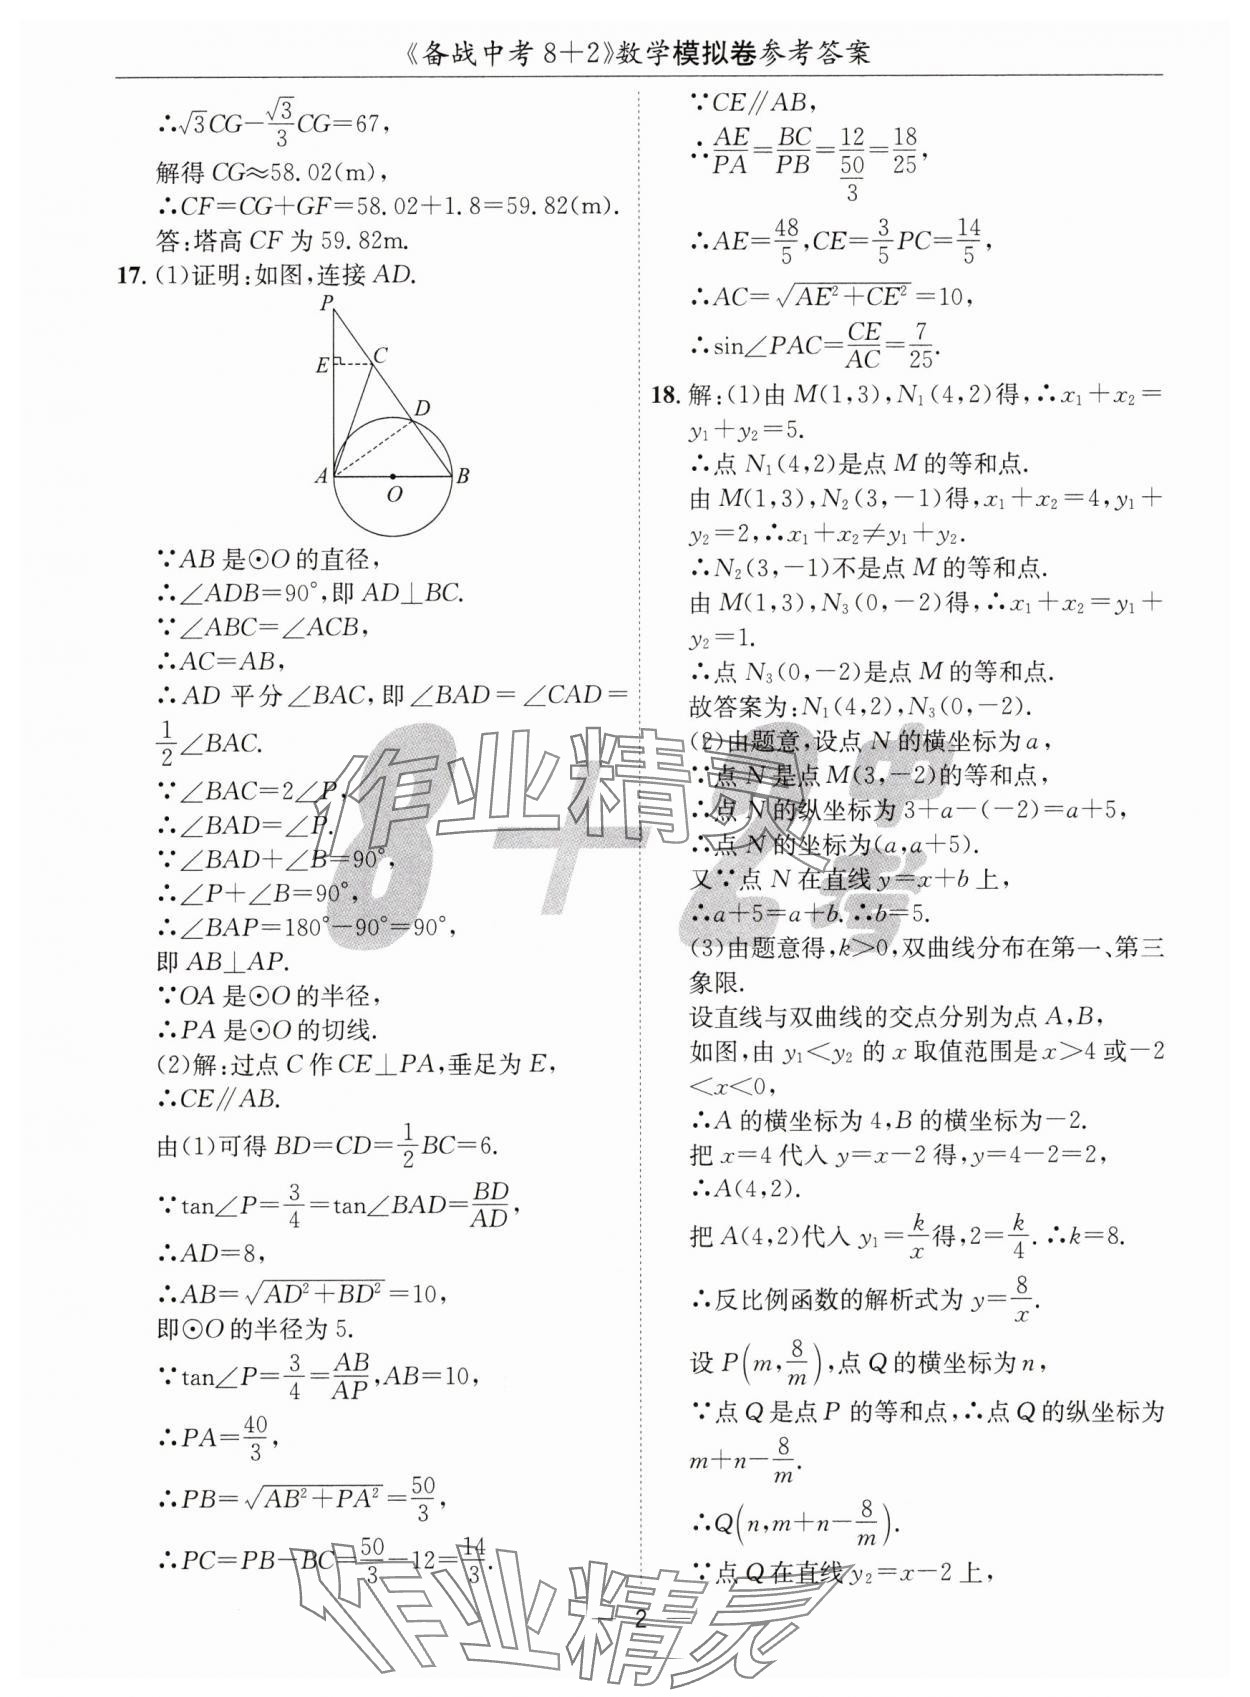 《备战中考8+2》数学模拟卷参考答案
∴√3CG-√3/3CG=67,
解得CG≈58.02(m),
∴CF=CG+GF=58.02+1.8=59.82(m).
答:塔高CF为59.82m.
17.(1)证明:如图,连接AD.
P
E C
D
A O B
∵AB是⊙O的直径,
∴∠ADB=90°,即AD⊥BC.
∵∠ABC=∠ACB,
∴AC=AB,
∴AD平分∠BAC,即∠BAD=∠CAD=
1/2∠BAC.
∵∠BAC=2∠P,
∴∠BAD=∠P.
∵∠BAD+∠B=90°,
∴∠P+∠B=90°,
∴∠BAP=180°-90°=90°,
即AB⊥AP.
∵OA是⊙O的半径,
∴PA是⊙O的切线.
(2)解:过点C作CE⊥PA,垂足为E,
∴CE∥AB.
由(1)可得BD=CD=1/2BC=6.
∵tan∠P=3/4=tan∠BAD=BD/AD,
∴AD=8,
∴AB=√(AD²+BD²)=10,
即⊙O的半径为5.
∵tan∠P=3/4=AB/AP,AB=10,
∴PA=40/3,
∴PB=√(AB²+PA²)=50/3,
∴PC=PB-BC=50/3-12=14/3.
∵CE∥AB,
∴AE/PA=BC/PB=12/(50/3)=18/25,
∴AE=48/5,CE=3/5PC=14/5,
∴AC=√(AE²+CE²)=10,
∴sin∠PAC=CE/AC=7/25.
18.解:(1)由M(1,3),N₁(4,2)得,∴x₁+x₂=
y₁+y₂=5.
∴点N₁(4,2)是点M的等和点.
由M(1,3),N₂(3,-1)得,x₁+x₂=4,y₁+
y₂=2,∴x₁+x₂≠y₁+y₂.
∴N₂(3,-1)不是点M的等和点.
由M(1,3),N₃(0,-2)得,∴x₁+x₂=y₁+
y₂=1.
∴点N₃(0,-2)是点M的等和点.
故答案为:N₁(4,2),N₃(0,-2).
(2)由题意,设点N的横坐标为a,
∵点N是点M(3,-2)的等和点,
∴点N的纵坐标为3+a-(-2)=a+5,
∴点N的坐标为(a,a+5).
又∵点N在直线y=x+b上,
∴a+5=a+b.∴b=5.
(3)由题意得,k>0,双曲线分布在第一、第三
象限.
设直线与双曲线的交点分别为点A,B,
如图,由y₁<y₂的x取值范围是x>4或-2
<x<0,
∴A的横坐标为4,B的横坐标为-2.
把x=4代入y=x-2得,y=4-2=2,
∴A(4,2).
把A(4,2)代入y₁=k/x得,2=k/4.∴k=8.
∴反比例函数的解析式为y=8/x.
设P(m,8/m),点Q的横坐标为n,
∵点Q是点P的等和点,∴点Q的纵坐标为
m+n-8/m.
∴Q(n,m+n-8/m).
∵点Q在直线y₂=x-2上,
2
作业精灵
8+2中考
作业精灵